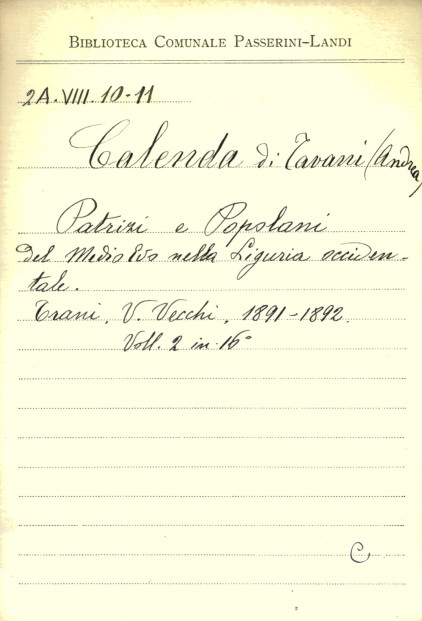 BIBLIOTECA COMUNALE PASSERINI-LANDI
2A.VIII.10-11
Calenda di Tavani (Andrea)
Patrizi e Popolani
del Medio Evo nella Liguria occiden-
tale.
Trani, V. Vecchi, 1891-1892.
Voll. 2 in-16°
C